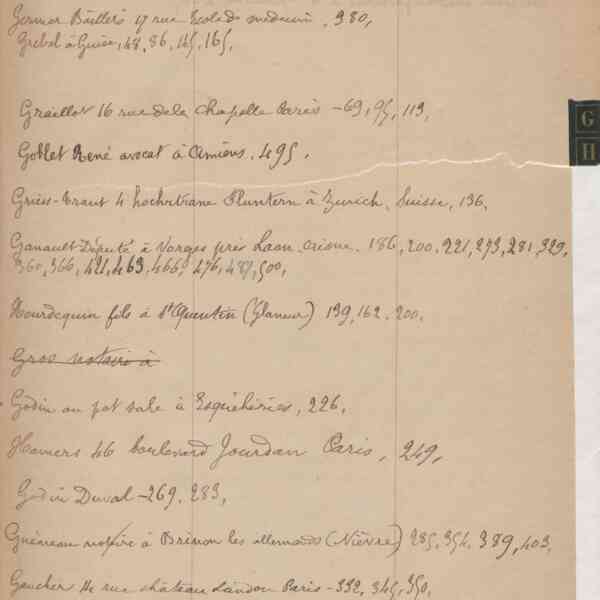 Germer Baillère 17 rue Ecole de médecine, 380,
Grebel à Guise, 48, 86, 145, 165,
Graillot 16 rue de la Chapelle Paris - 69, 95, 113,
G
H
Goblet René avocat à Amiens, 495,
Griess-Traut 4 Pluntern à Zurich, Suisse, 136,
Ganault Député à Vorges près Laon Aisne, 186, 200, 221, 273, 281, 329,
360, 366, 421, 463, 466, 476, 487, 500,
Hourdequin fils à St Quentin (Glaneur) 139, 162, 200,
Gros notaire à
Godin au pot sale à Esquéhéries, 226,
Hamers 46 boulevard Jourdan Paris, 249,
Godin Duval - 269, 283,
Guéneau notaire à Brinon les allemands (Nièvre) 285, 354, 389, 403,
Gaucher 14 rue château Landon Paris - 332, 345, 350,